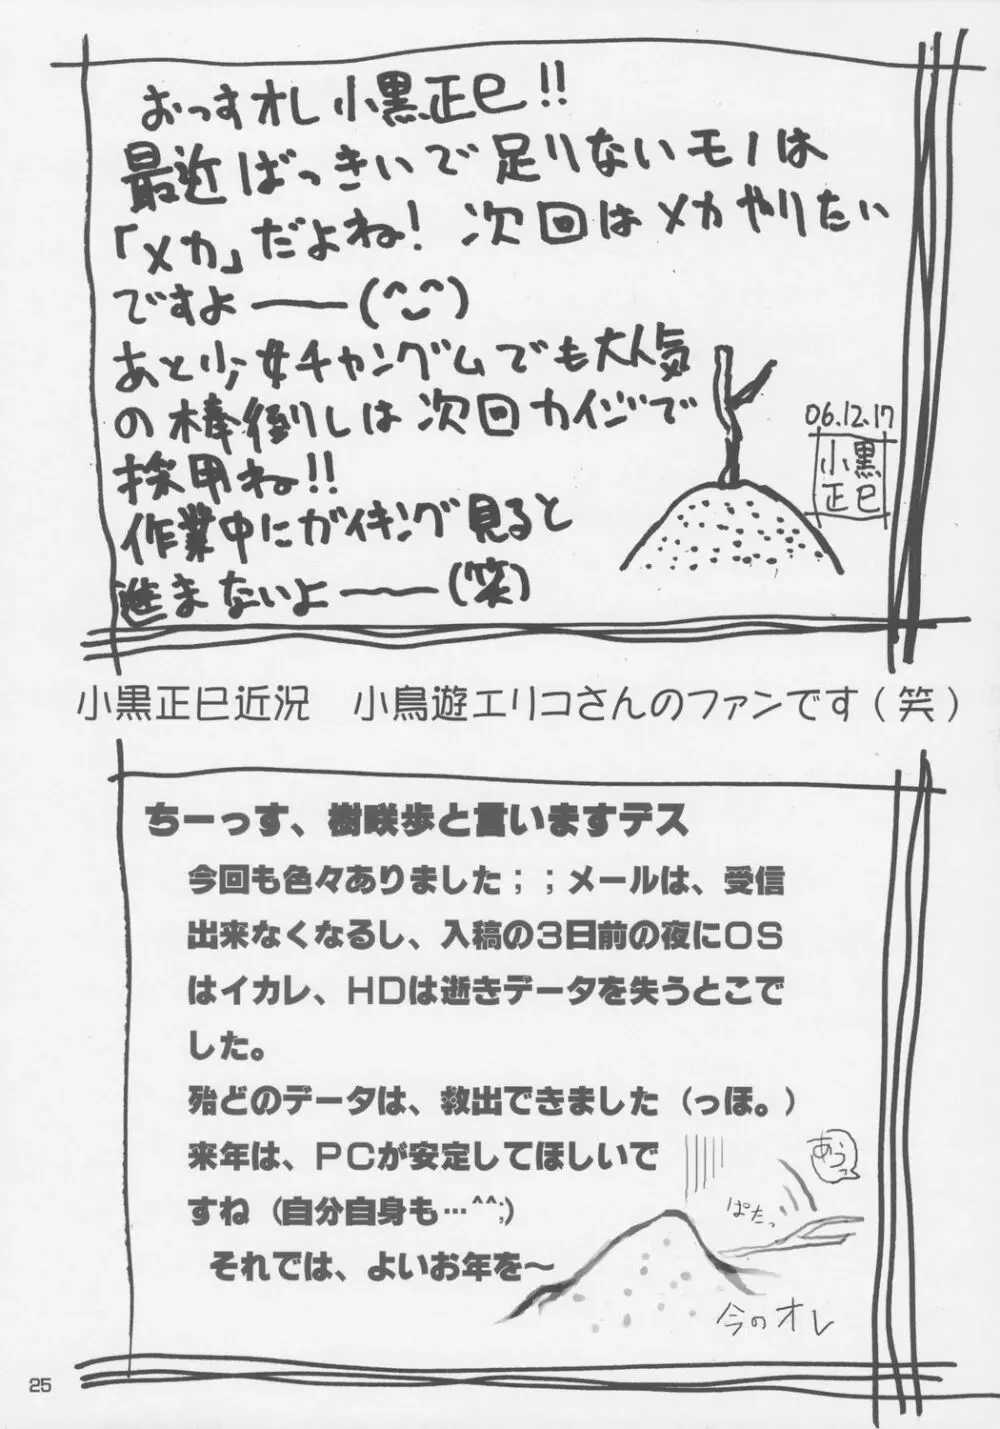 おっすオレ小黒正巳!!
最近ばっきいで足りないモノは
「メカ」だよね! 次回はメカやりたい
ですよ——(^‿^)
あと少女チャングムでも大人気
の棒倒しは次回カイジで
採用ね!!
作業中にガイキング見ると
進まないよ——(笑)
06.12.17
小黒
正巳
小黒正巳近況　小鳥遊エリコさんのファンです(笑)
ちーっす、樹咲歩と言いますデス
今回も色々ありました；；メールは、受信
出来なくなるし、入稿の３日前の夜にＯＳ
はイカレ、ＨＤは逝きデータを失うとこで
した。
殆どのデータは、救出できました（っほ。）
来年は、ＰＣが安定してほしいで
すね（自分自身も…^^;）
それでは、よいお年を〜
あうっ
ぱたっ
今のオレ
25